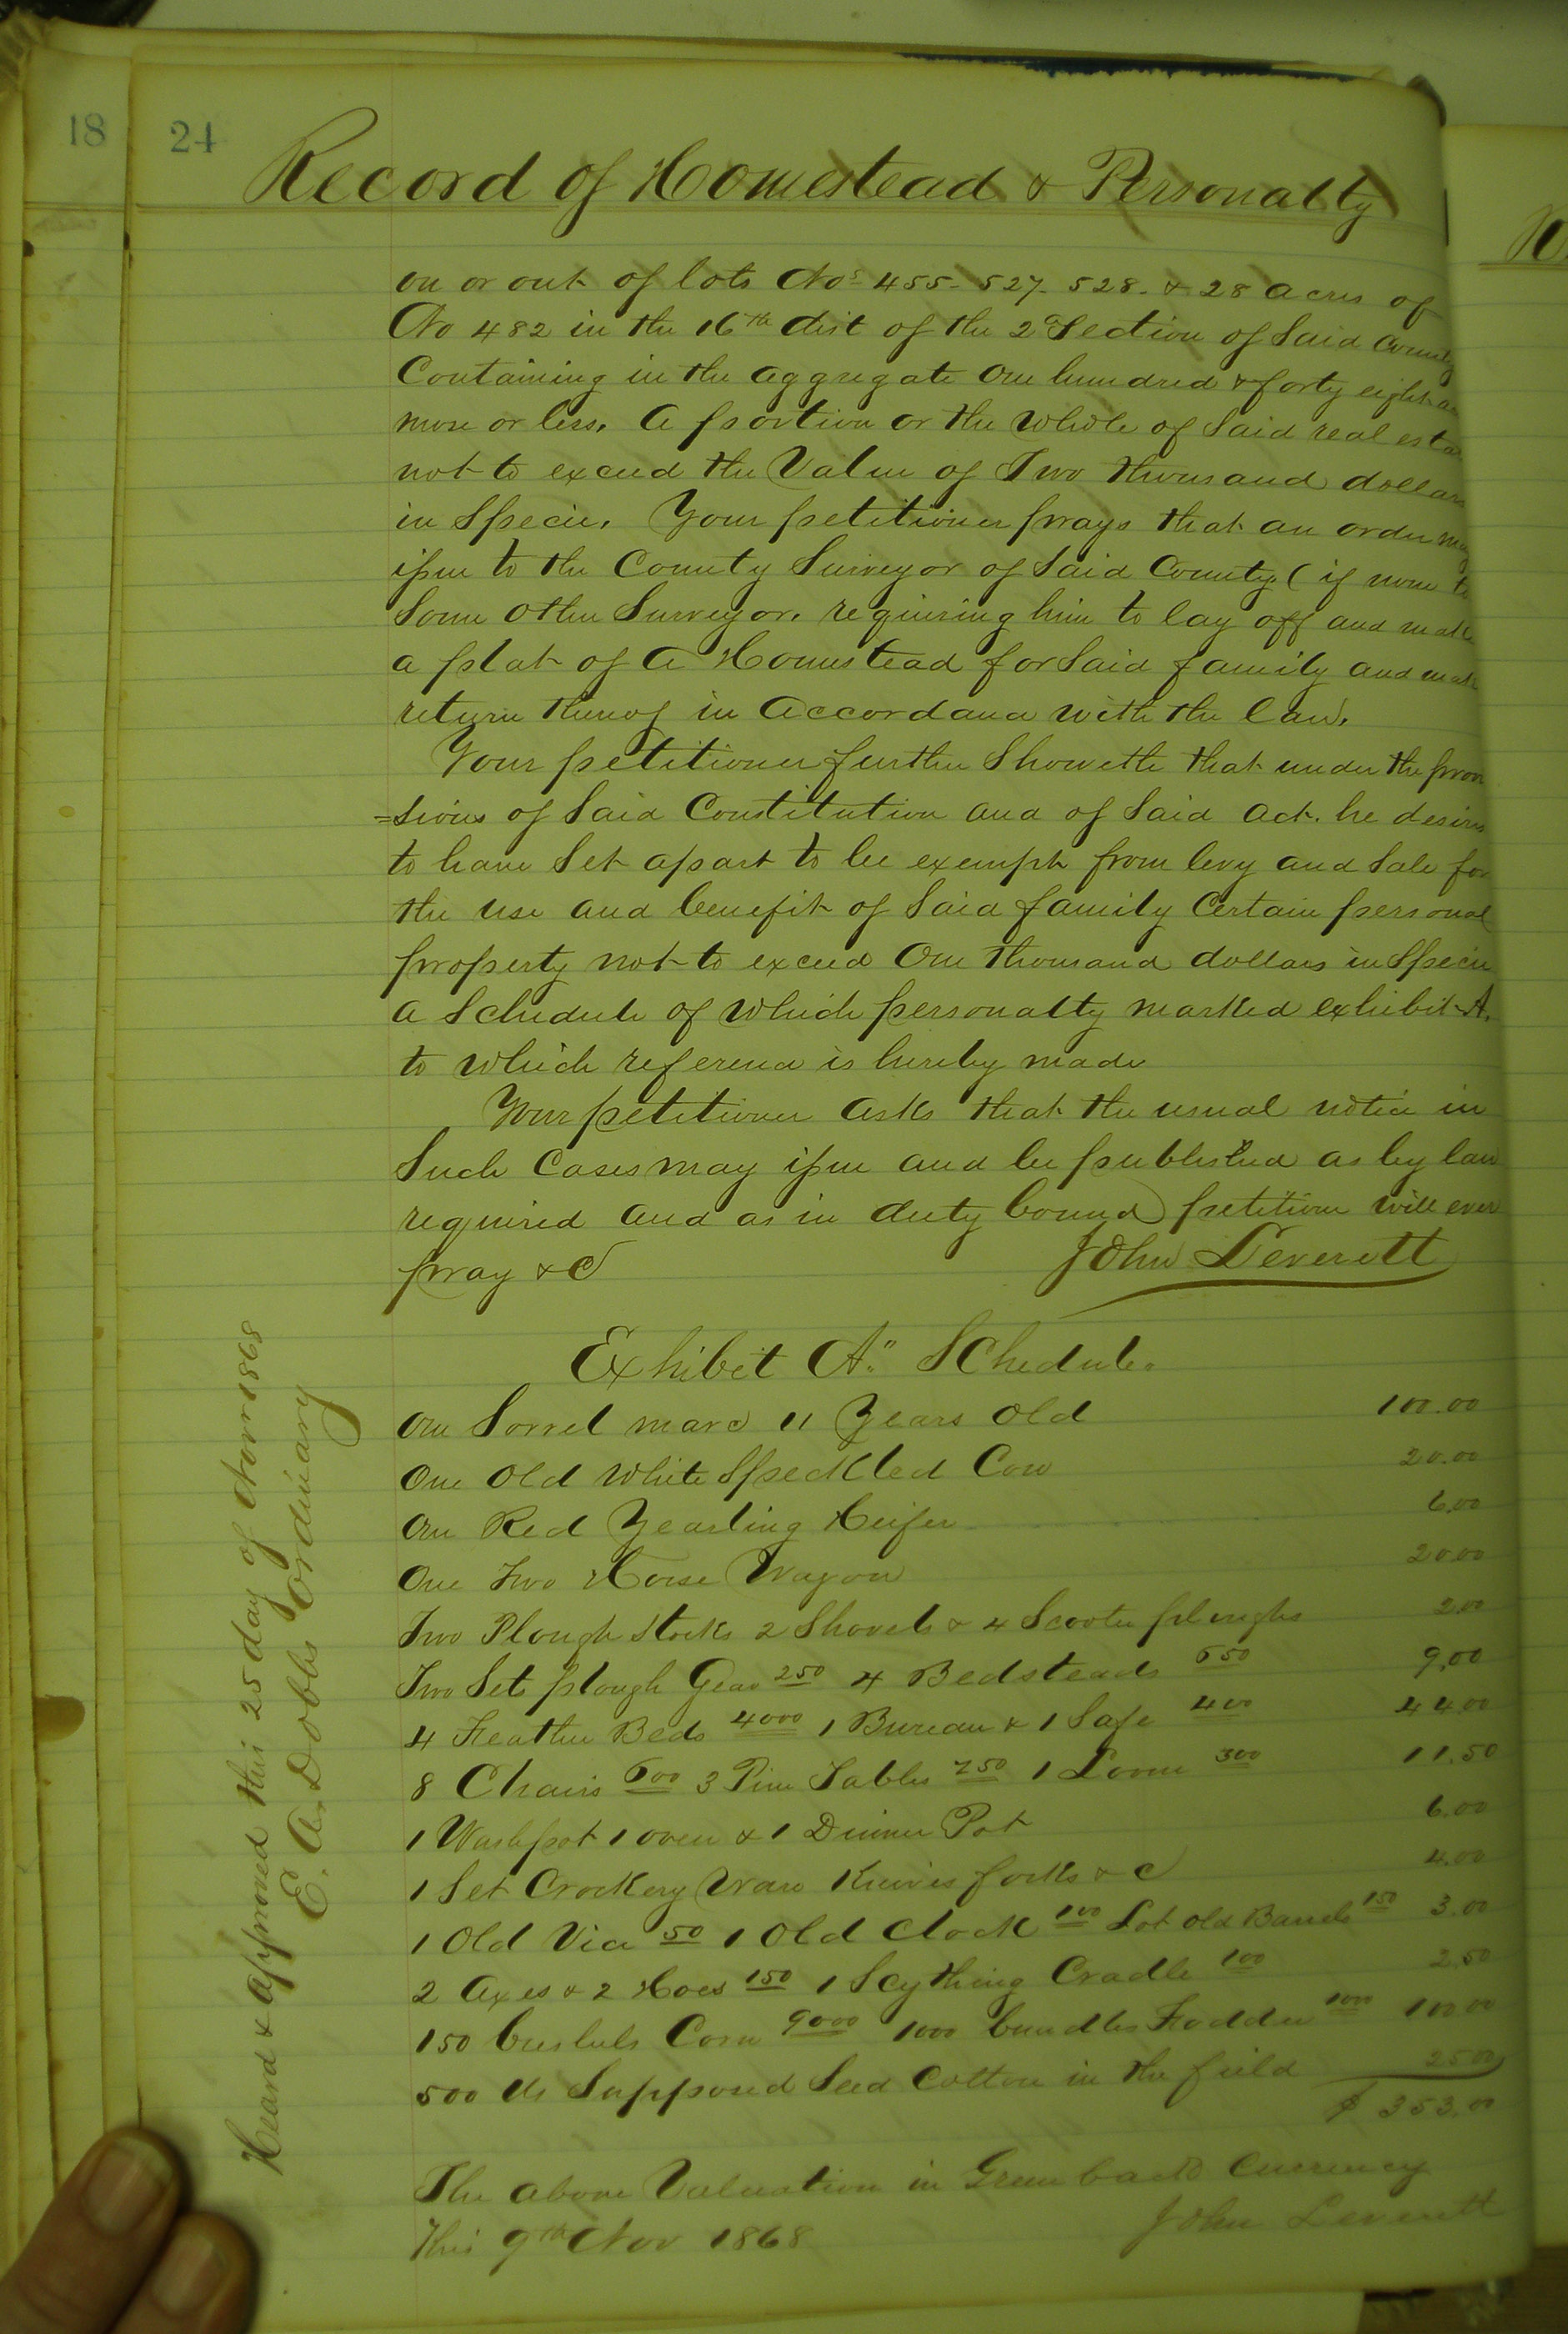 18
24
Record of Homestead & Personalty
on or out of lots Nos 455- 527- 528- & 28 acres of
No 482 in the 16th dist of the 2d Section of Said County
Containing in the aggregate One hundred & forty eight
more or less, a portion or the whole of Said real esta
not to exceed the Value of Two thousand dollars
in Specie. Your petitioner prays that an order may
issue to the County Surveyor of Said County (if none to
Some other Surveyor, requiring him to lay off and make
a plat of a Homestead for Said family and make
return thereof in accordance with the law.
Your petitioner further Showeth that under the provi
=sions of Said Constitution and of Said act. he desires
to have Set apart to be exempt from levy and Sale for
the use and benefit of Said family Certain personal
property not to exceed One thousand dollars in Specie
a Schedule of which personalty marked exhibit A.
to which reference is hereby made
Your petitioner asks that the usual notice in
Such Cases may issue and be published as by law
required and as in duty bound petitioner will ever
pray &c John Leverett
Exhibit "A" Schedule.
One Sorrel mare 11 Years Old 100.00
One Old White Speckled Cow 20.00
One Red Yearling Heifer 6.00
One Two Horse Wagon 20.00
Two Plough Stocks 2 Shovels & 4 Scooter ploughs 2.00
Two Sets plough Gear 2 50 4 Bedsteads 6 50 9.00
4 Feather Beds 40 00 1 Bureau & 1 Safe 4 00 44.00
8 Chairs 6 00 3 Pine Tables 2 50 1 Loom 3 00 11.50
1 Washpot 1 oven & 1 Dinner Pot 6.00
1 Set Crockery Ware Knives forks &c 4.00
1 Old Vice 50 1 Old Clock 1 00 Lot old Barrels 1 50 3.00
2 Axes & 2 Hoes 1 50 1 Scything Cradle 1 00 2.50
150 bushels Corn 90 00 1000 bundles Fodder 10 00 100 00
500 lbs Supposed Seed Cotton in the field 25 00
$ 353.00
The above Valuation in Green back currency
This 9th Nov 1868 John Leverett
Heard & approved this 25 day of Novr 1868
E. A. Dobbs Ordinary